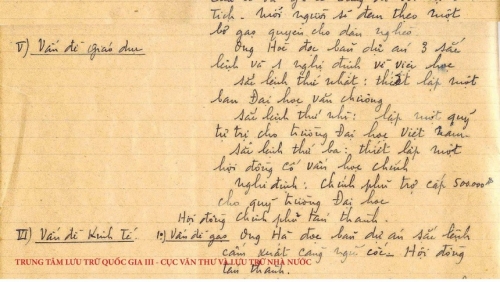 tịch. Mỗi người sẽ đem theo một
bơ gạo quyên cho dân nghèo
V) Vấn đề giáo dục
Ông Hoè đọc bản dự án 3 sắc
lệnh và 1 nghị định về việc học
sắc lệnh thứ nhất: thiết lập một
ban Đại học văn chương
sắc lệnh thứ nhì: lập một quỹ
tự trị cho trường Đại học Việt Nam
sắc lệnh thứ ba: thiết lập một
hội đồng cố vấn học chính
nghị định: chính phủ trợ cấp 500.000đ
cho quỹ trường Đại học
Hội đồng chính phủ tán thành.
VI) Vấn đề Kinh tế 1º) Vấn đề gạo Ông Hà đọc bản dự án sắc lệnh
cấm xuất cảng ngũ cốc. Hội đồng
tán thành.
TRUNG TÂM LƯU TRỮ QUỐC GIA III - CỤC VĂN THƯ VÀ LƯU TRỮ NHÀ NƯỚC